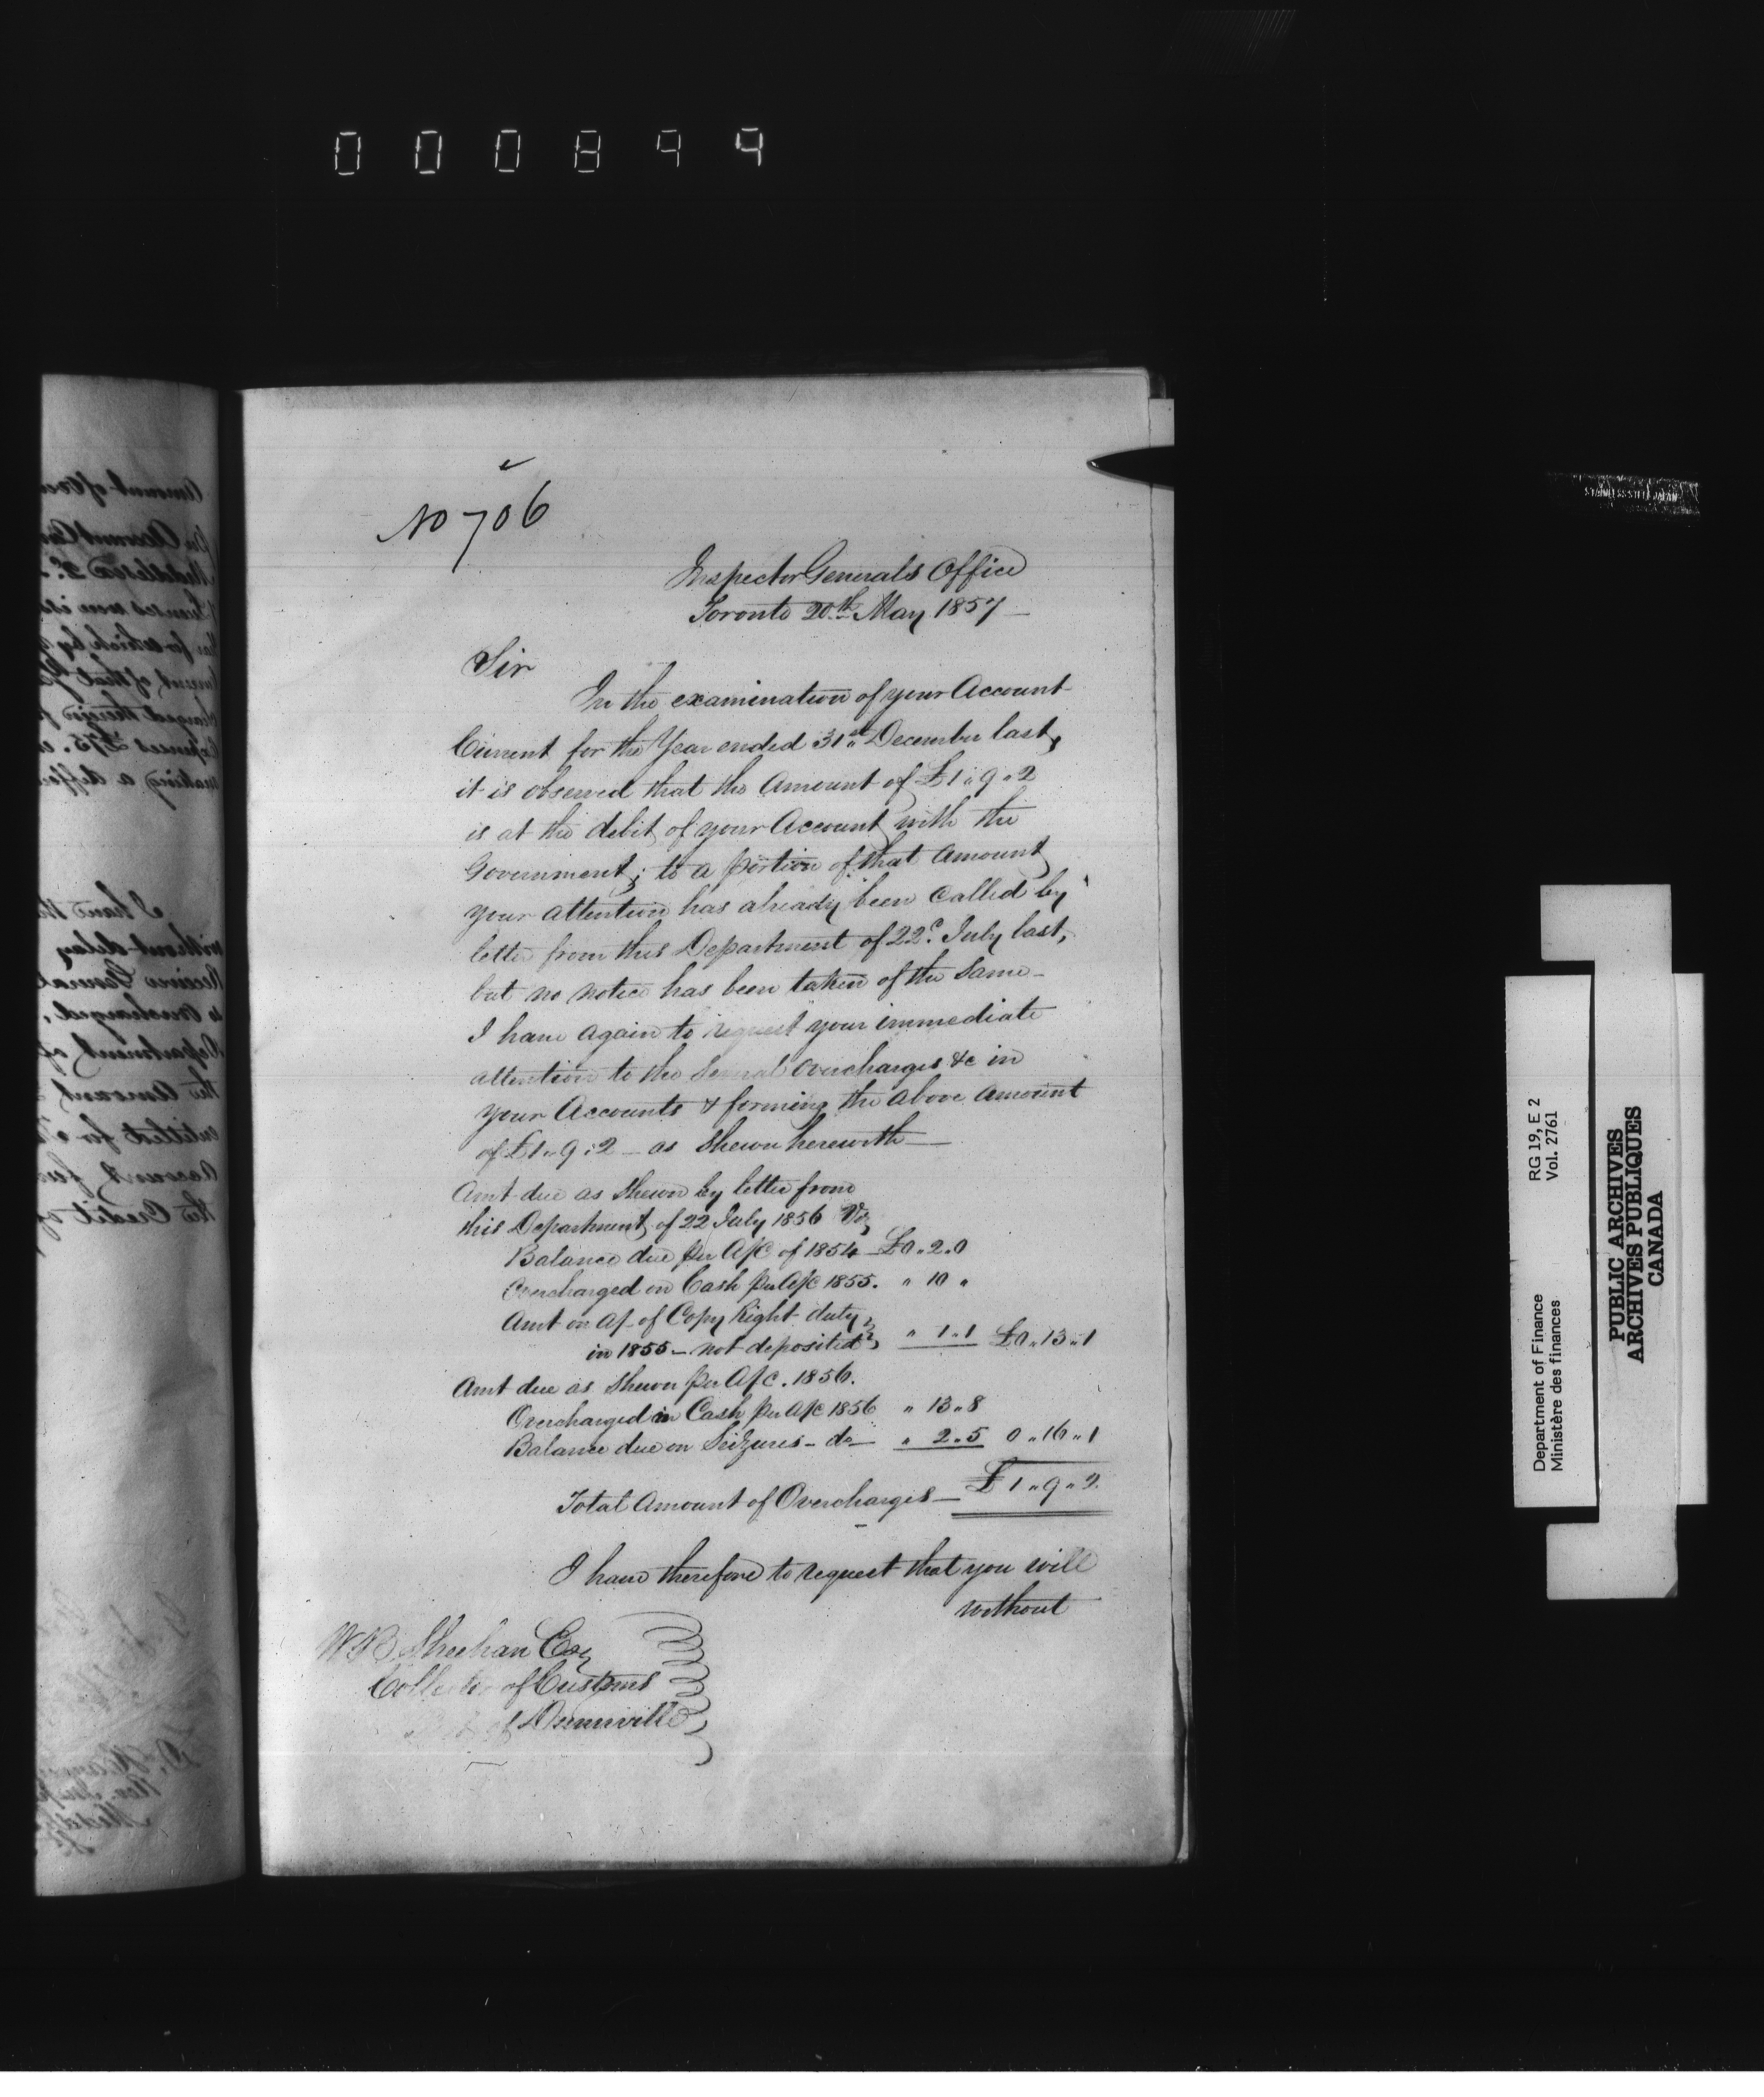 000899
No 706
Inspector Generals Office
Toronto 20th May 1857
Sir
In the examination of your Account
Current for the Year ended 31st December last,
it is observed that the Amount of £1 " 9 " 2
is at the debit of your Account with the
Government; to a portion of that Amount
your attention has already been called by
letter from this Department of 22d. July last,
but no notice has been taken of the same -
I have again to request your immediate
attention to the several Overcharges &c in
your Accounts & forming the above Amount
of £1 " 9 : 2 - as shewn herewith -
Amt due as shewn by letter from
this Department of 22 July 1856 Viz
Balance due per A/c of 1854 £0 " 2 " 0
Overcharged on Cash per A/c 1855. " 10 "
Amt on A/ of Copy Right duty
in 1855 - not deposited " 1 " 1 £0 " 13 " 1
Amt due as shewn per A/c. 1856.
Overcharged in Cash per A/c 1856 " 13 " 8
Balance due on Seizures - do - " 2 " 5 0 " 16 " 1
Total Amount of Overcharges - £1 " 9 " 2
I have therefore to request that you will
without
W B Sheehan Esq
Collector of Customs
of Dunnville
RG 19, E 2
Vol. 2761
Department of Finance
Ministère des finances
PUBLIC ARCHIVES
ARCHIVES PUBLIQUES
CANADA